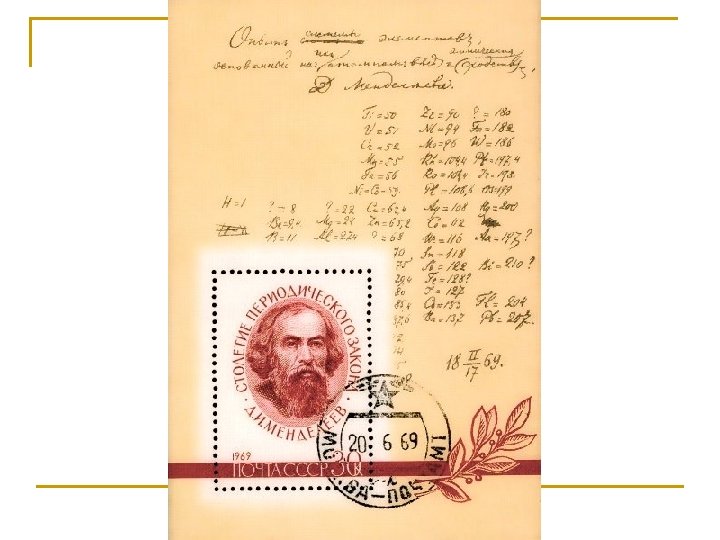 Опытъ системы элементовъ,
основанный на ихъ атомномъ вѣсѣ и химическомъ сходствѣ,
Д. Менделѣевъ.
Ti=50 Zr=90 ?=180
V=51 Nb=94 Ta=182
Cr=52 Mo=96 W=186
Mn=55 Rh=104,4 Pt=197,4
Fe=56 Ru=104,4 Ir=198
Ni=Co=59 Pl=106,6 Os=199
H=1 ?=8 ?=22 Cu=63,4 Ag=108 Hg=200
Be=9,4 Mg=24 Zn=65,2 Cd=112
B=11 Al=27,4 ?=68 Ur=116 Au=197?
70 Sn=118
75 Sb=122 Bi=210?
79,4 Te=128?
80 J=127
85,4 Cs=133 Tl=204
87,6 Ba=137 Pb=207.
18 II/17 69.
СТОЛЕТИЕ ПЕРИОДИЧЕСКОГО ЗАКОНА
Д.И.МЕНДЕЛЕЕВ
1969
ПОЧТА СССР 30к
20 6 69